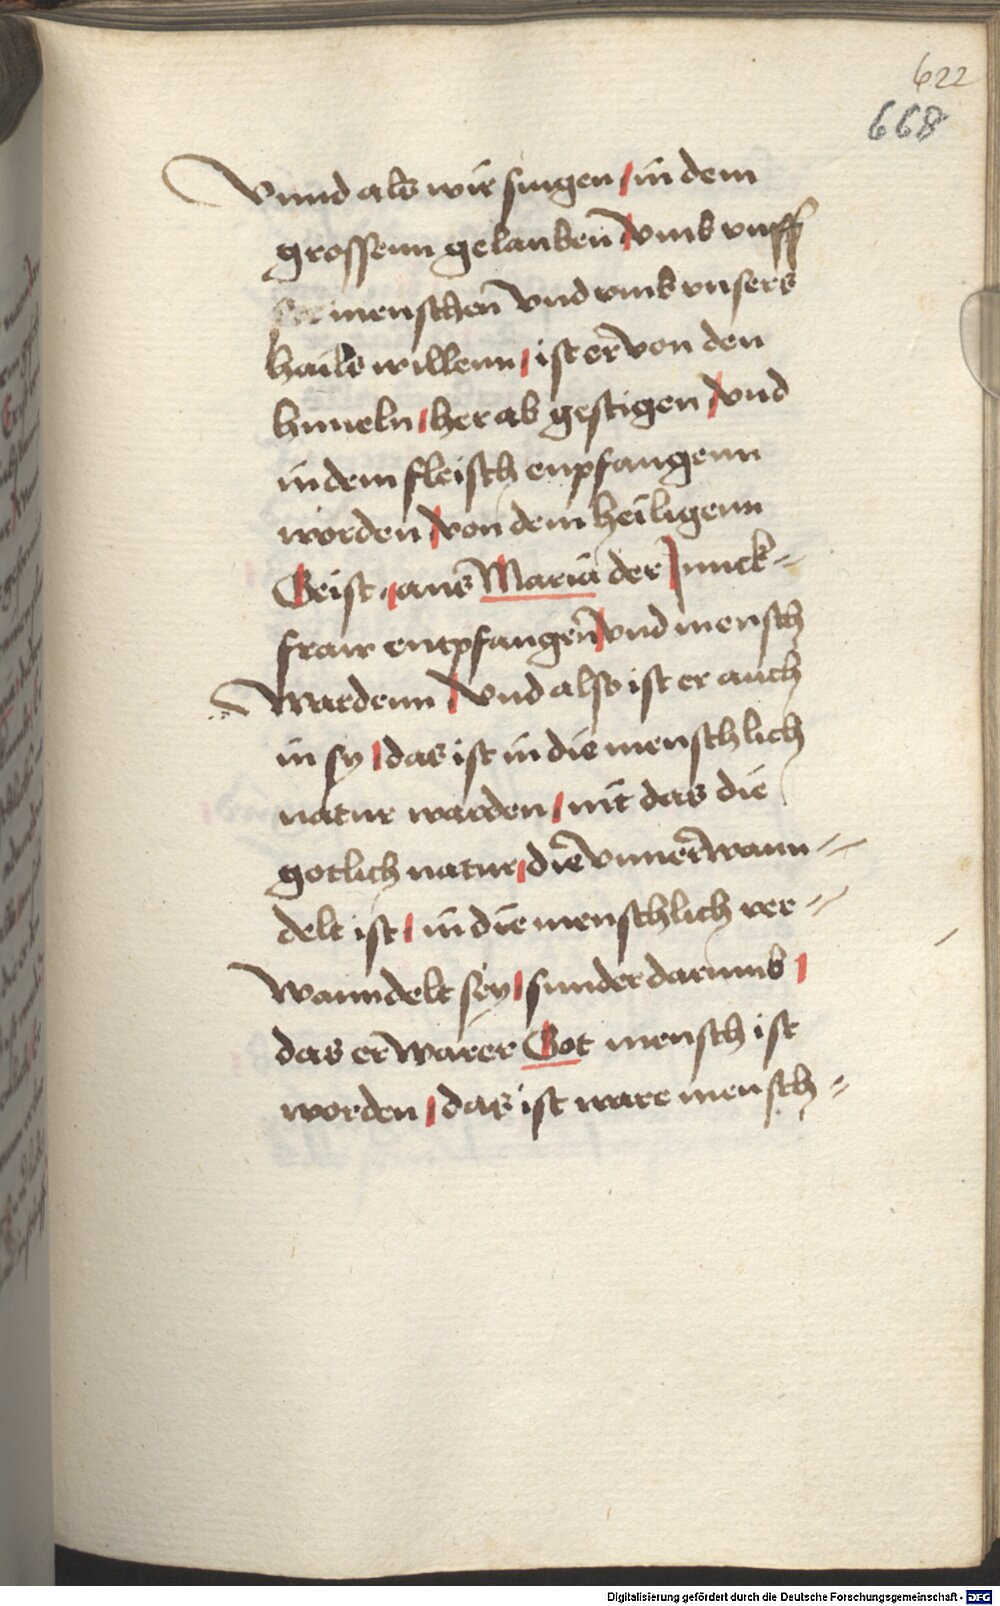 622
668
Vnnd als wir singen / in dem
grossenn gelauben̄ / vmb vnss
ser menschen̄ vnd vmb vnsers
hails willenn / ist er von den
himeln / her ab gestigen / vnd
in dem fleisch enpfangenn
worden / von dem heiligenn
Geist / aus Maria der Junck=
fraw entpfangen̄ / vnd mensch
wardenn / vnd also ist er auch
in sy / das ist in die menschlich
natur warden / nit das die
gotlich natur / die vnuerwann=
delt ist / in die menschlich ver=
wanndelt sey / sunder darumb /
das er warer Got mensch ist
worden / das ist ware mensch=
Digitalisierung gefördert durch die Deutsche Forschungsgemeinschaft - DFG